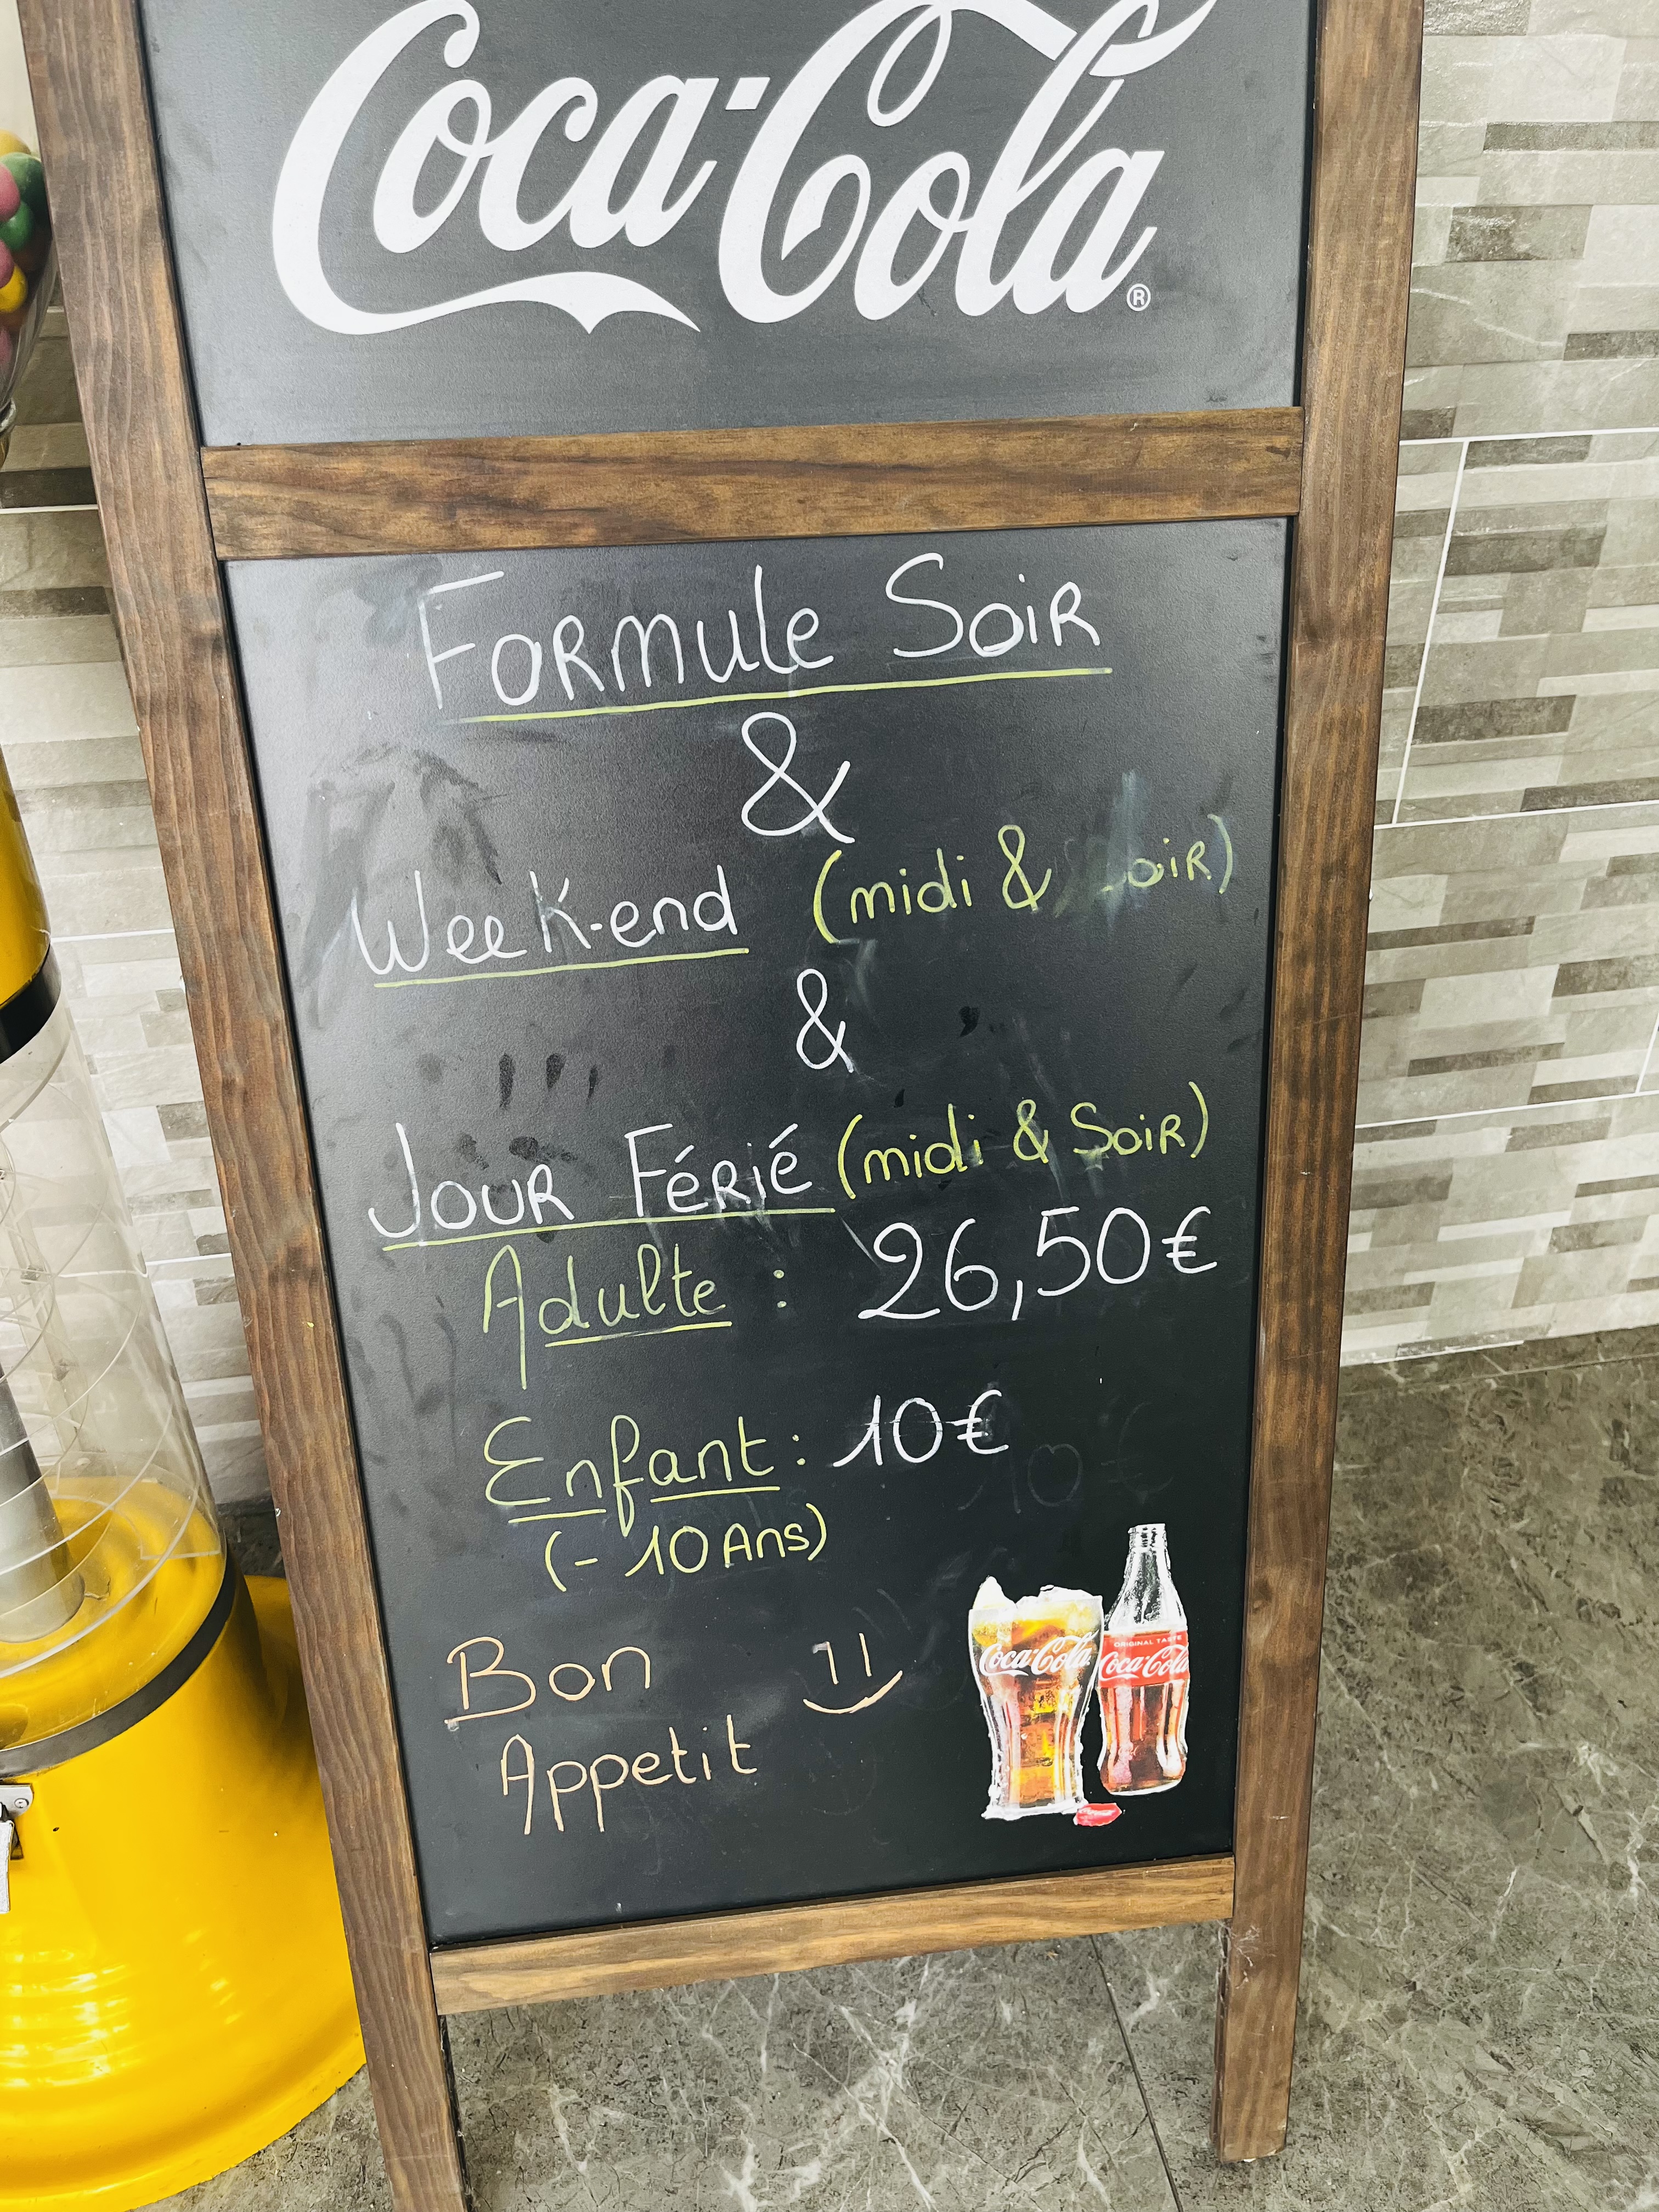 Coca-Cola®
Formule Soir
&
Week-end (midi & Soir)
&
Jour Férié (midi & Soir)
Adulte : 26,50€
Enfant : 10€
(- 10 Ans)
Bon
Appetit
Coca-Cola
ORIGINAL TASTE
Coca-Cola